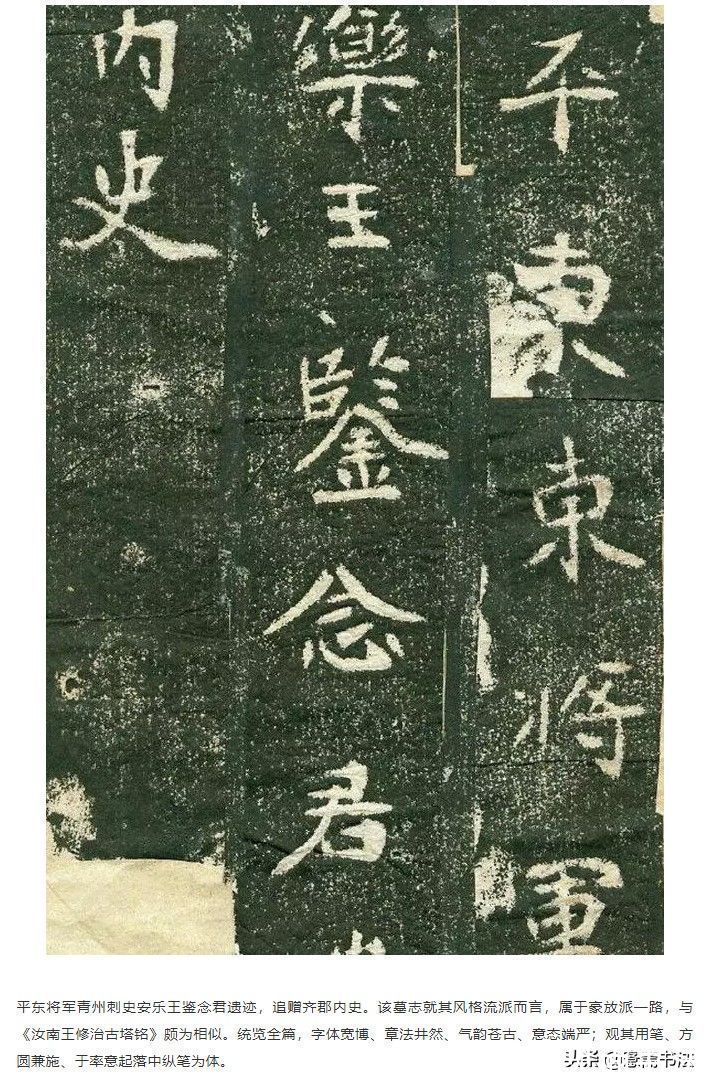 平東東將軍
樂王鑒念君
内史
平东将军青州刺史安乐王鉴念君遗迹，追赠齐郡内史。该墓志就其风格流派而言，属于豪放派一路，与
《汝南王修治古塔铭》颇为相似。统览全篇，字体宽博、章法井然、气韵苍古、意态端严；观其用笔、方
圆兼施、于率意起落中纵笔为体。
头条